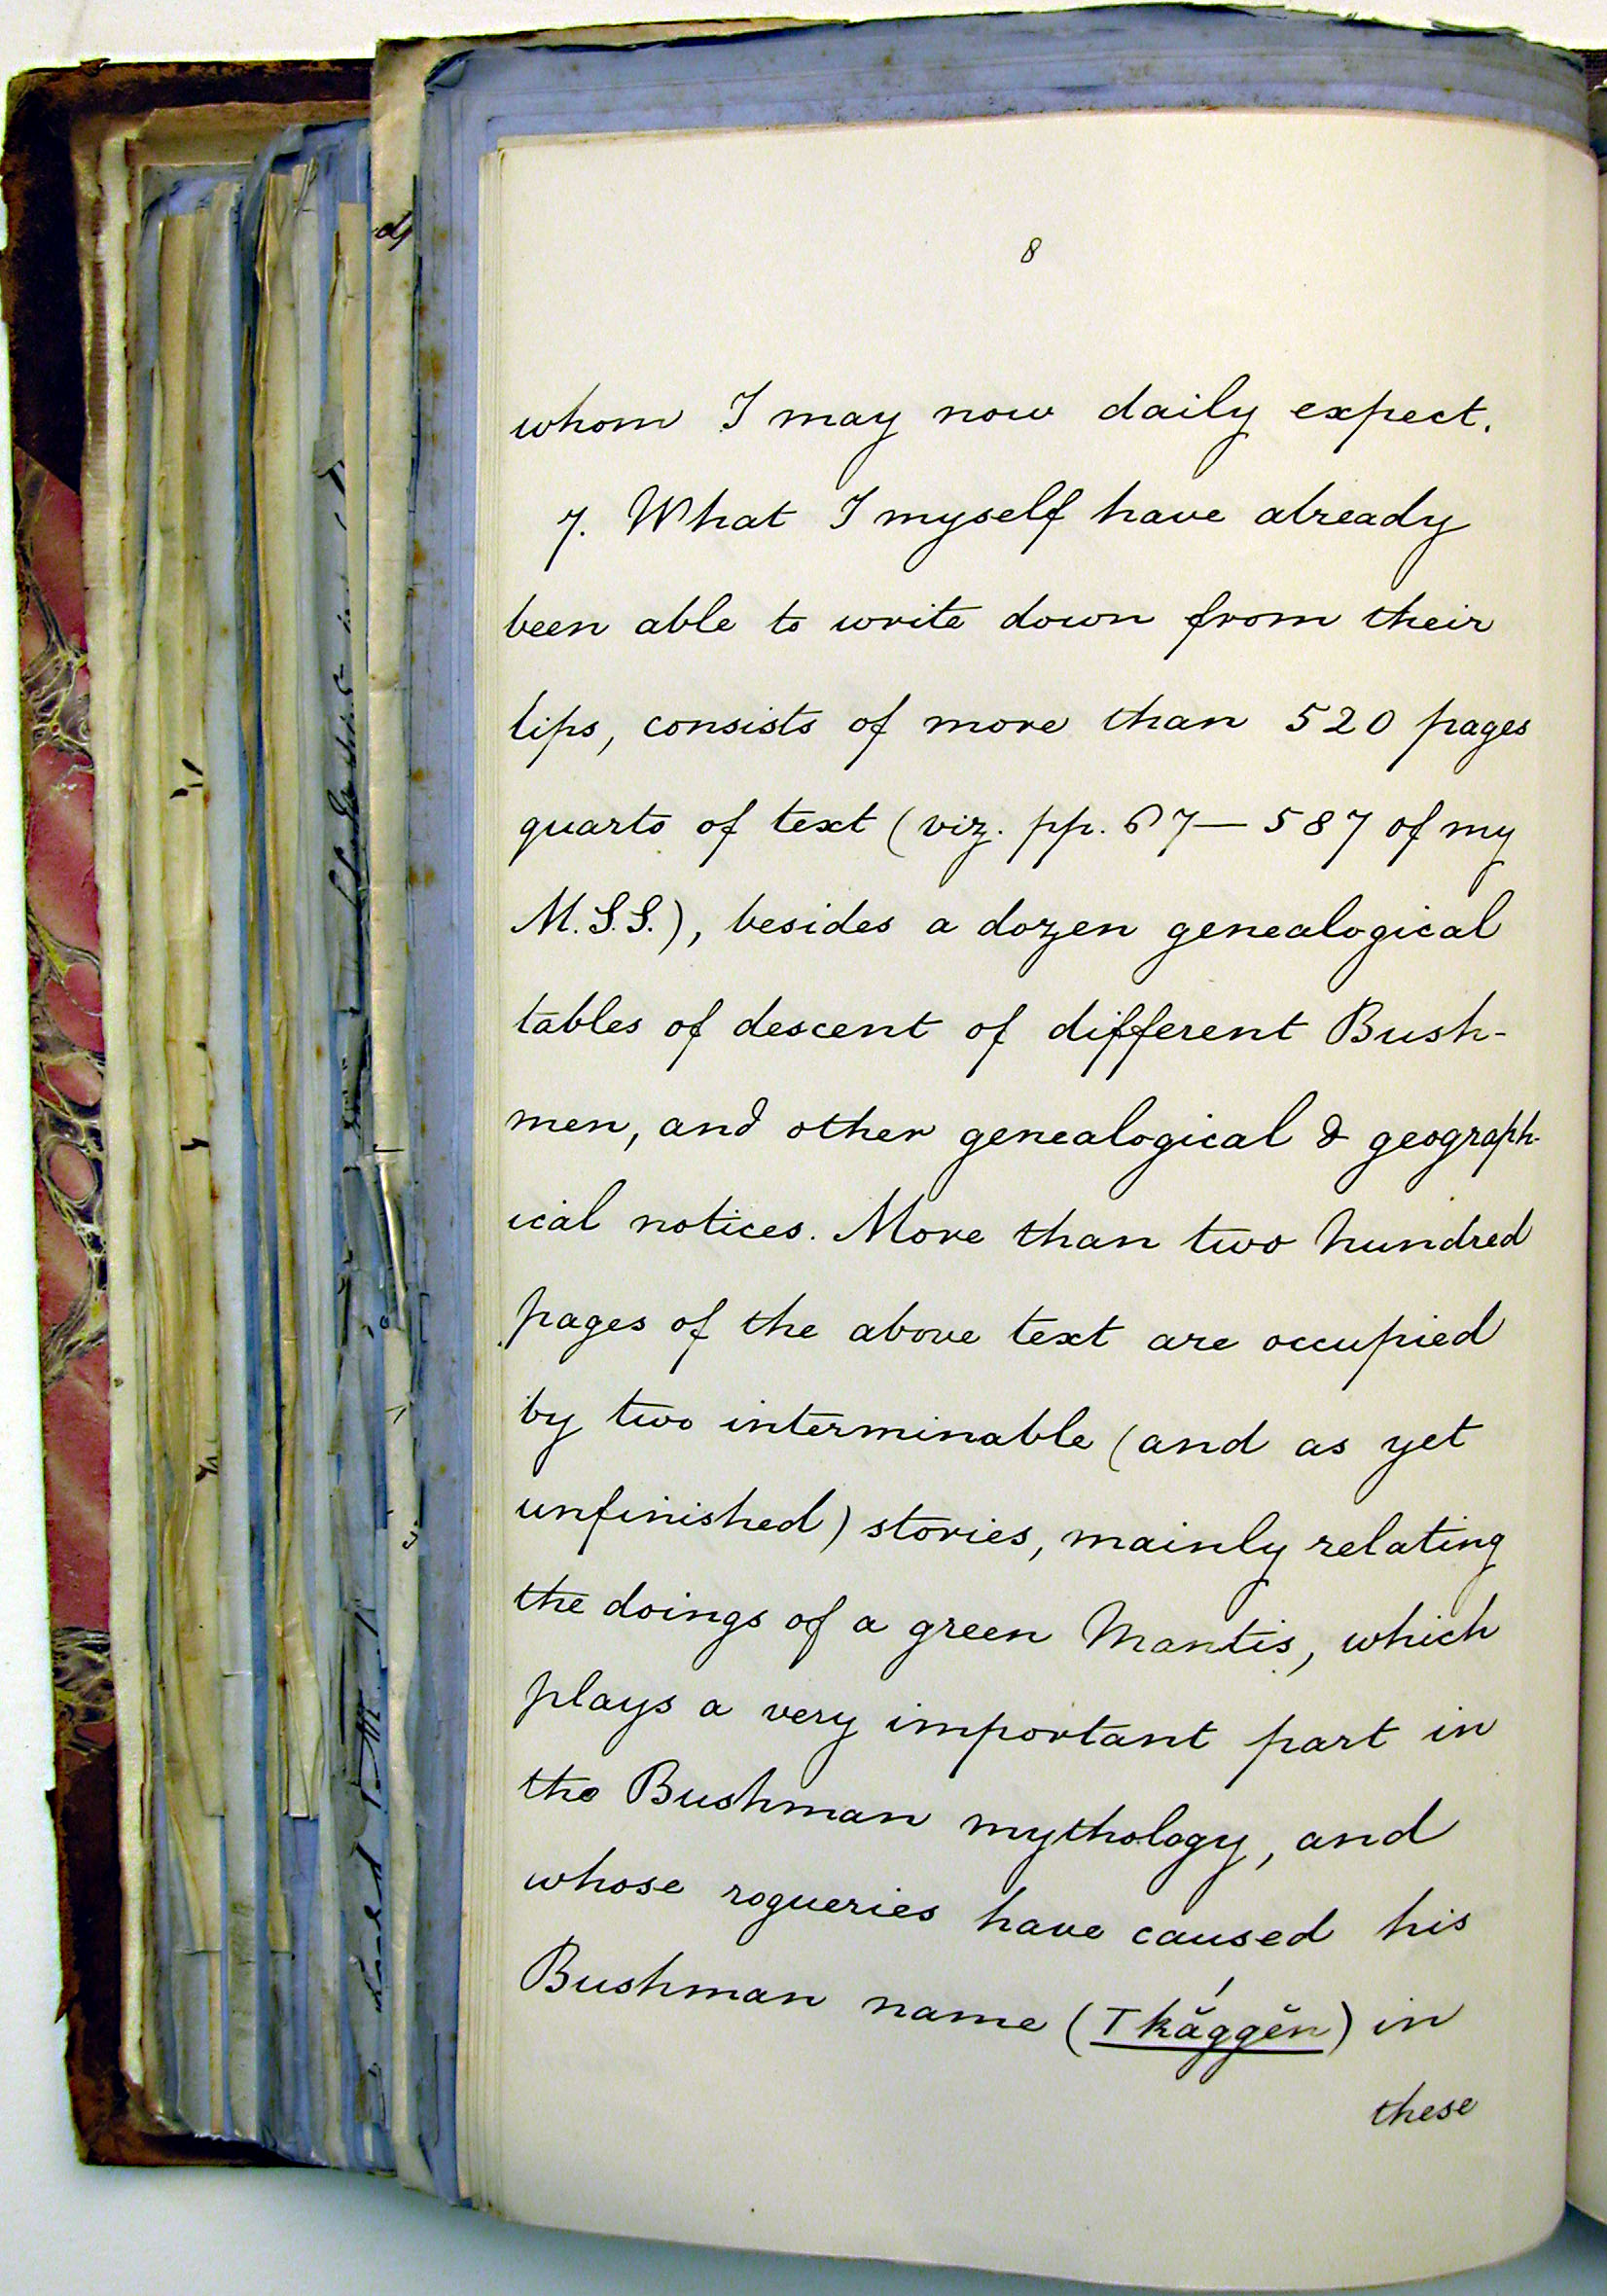 8
whom I may now daily expect.
7. What I myself have already
been able to write down from their
lips, consists of more than 520 pages
quarto of text (viz. pp. 67—587 of my
M.S.S.), besides a dozen genealogical
tables of descent of different Bush-
men, and other genealogical & geograph-
ical notices. More than two hundred
pages of the above text are occupied
by two interminable (and as yet
unfinished) stories, mainly relating
the doings of a green Mantis, which
plays a very important part in
the Bushman mythology, and
whose rogueries have caused his
Bushman name (T kắggĕn) in
these